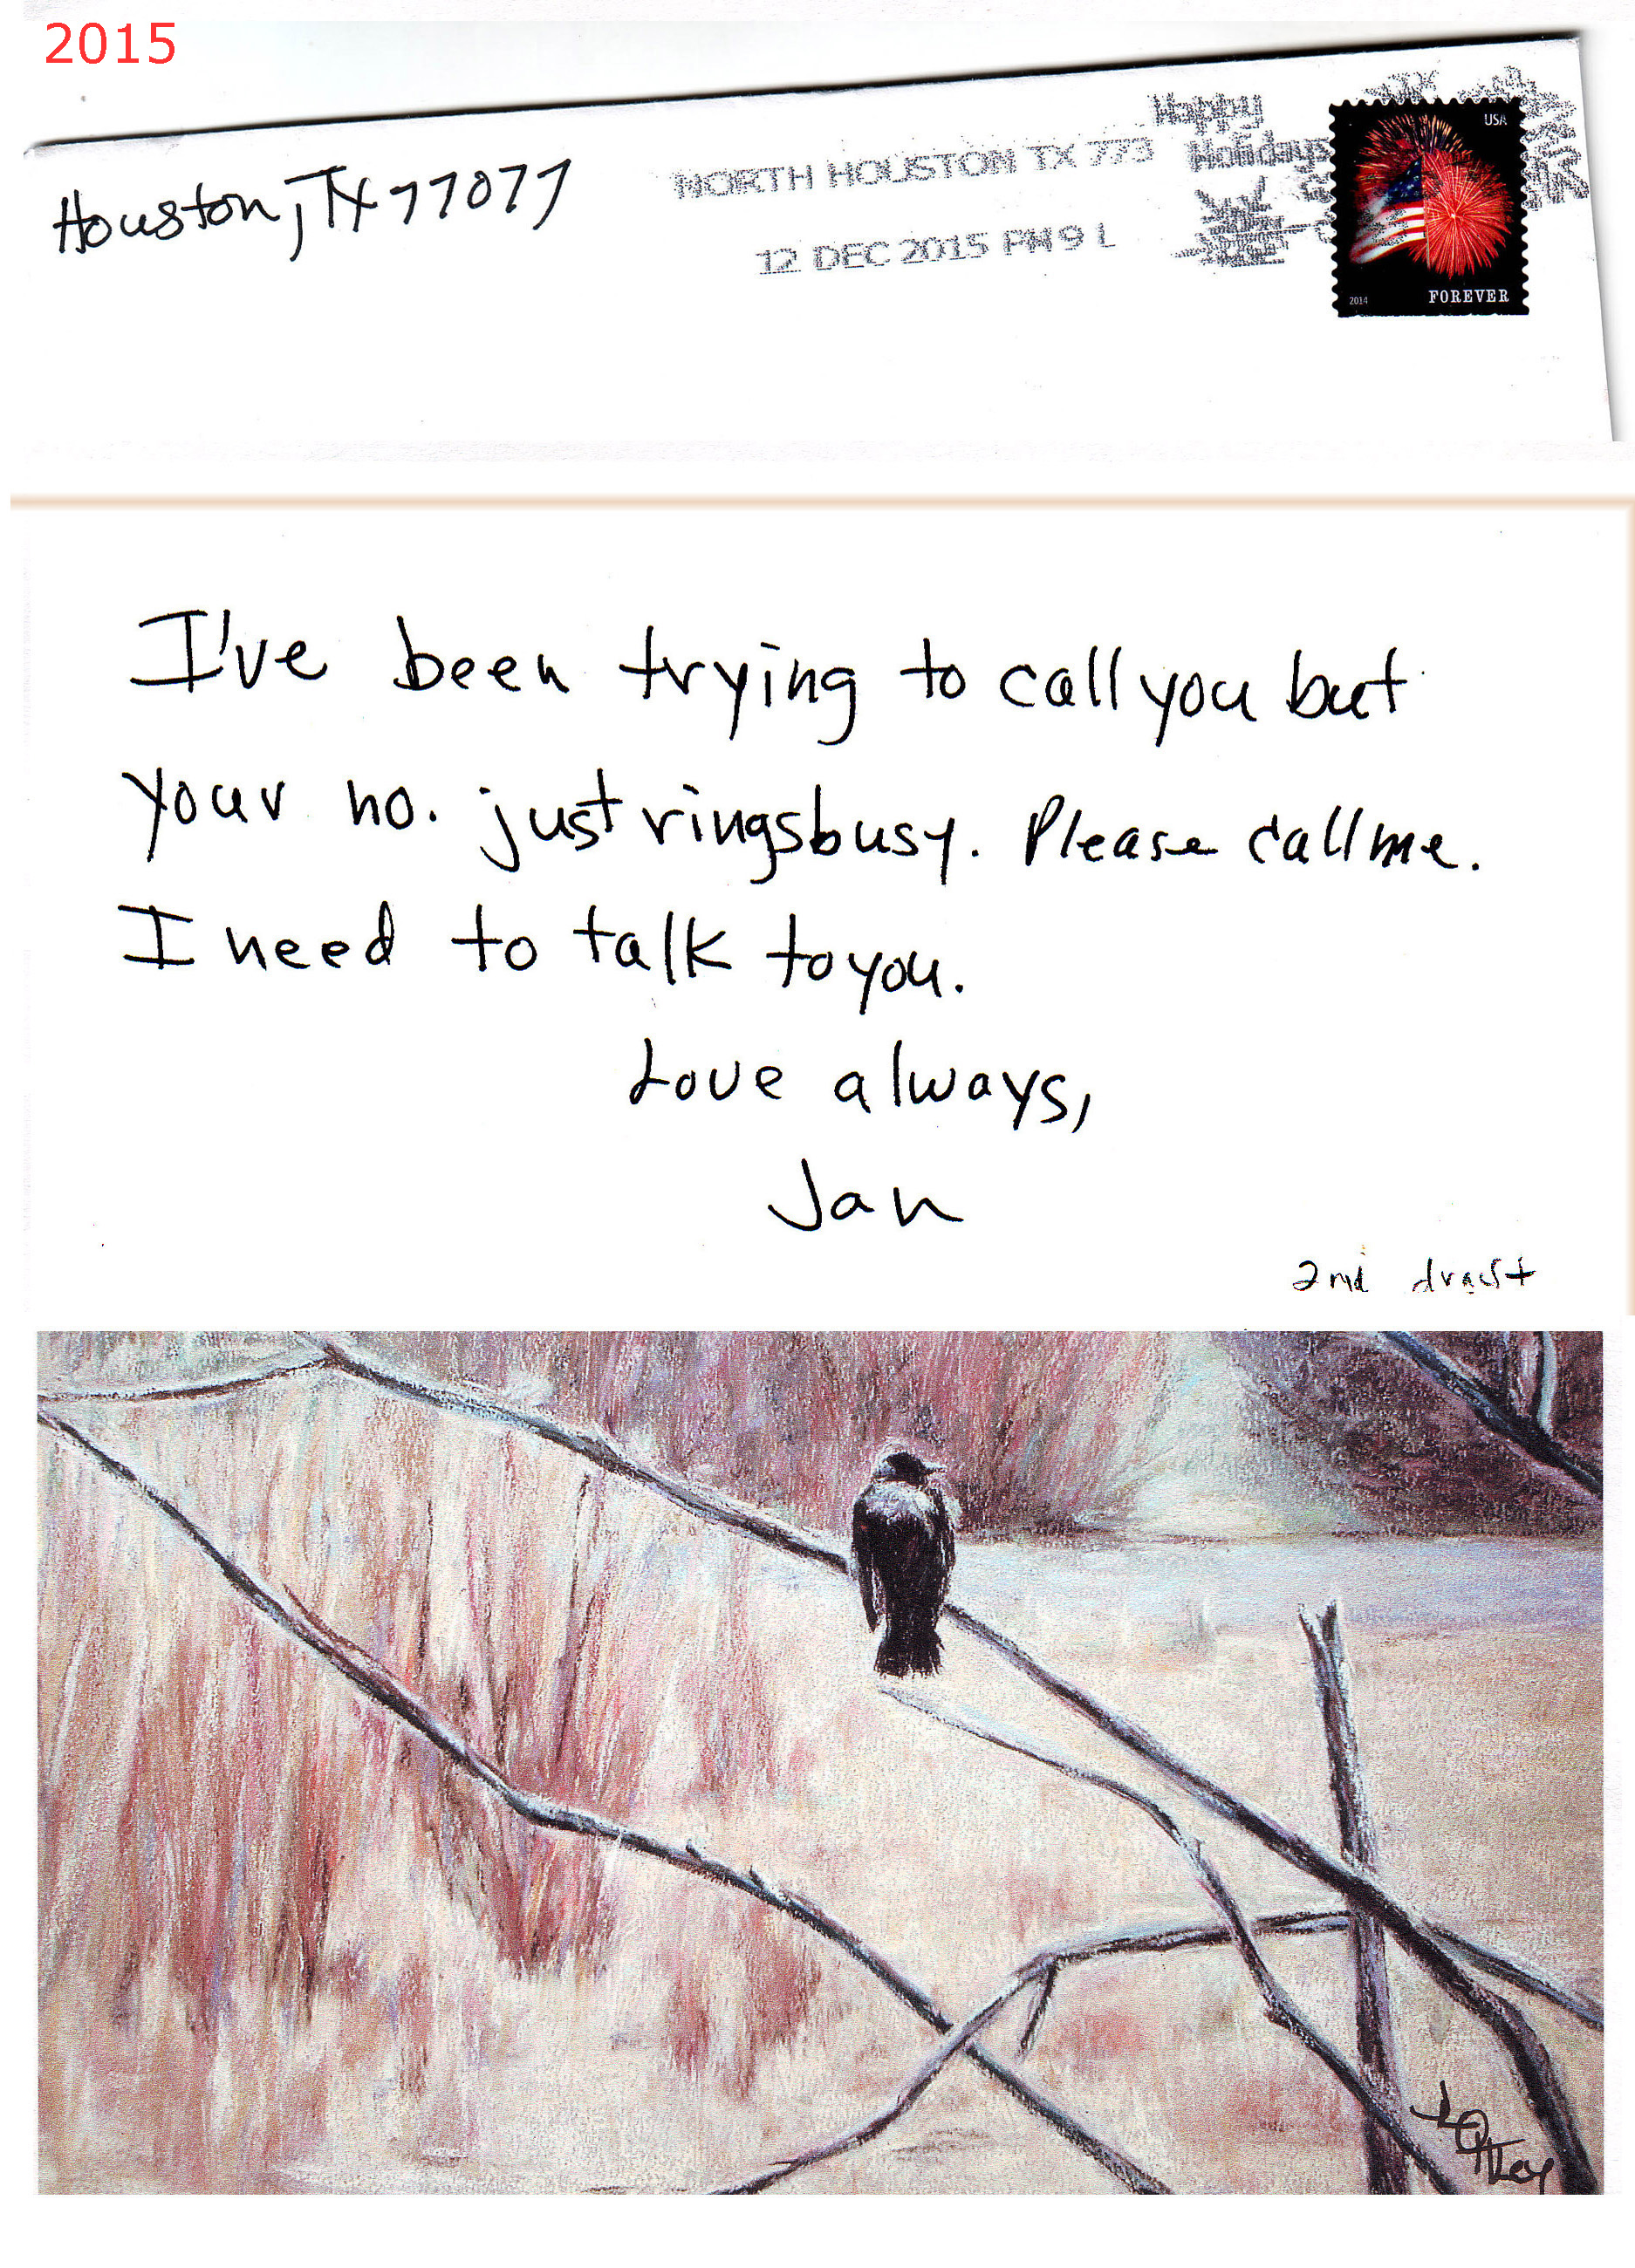 2015
Houston, TX 77077
NORTH HOUSTON TX 773
12 DEC 2015 PM 9 L
Happy
Holidays
USA
2014 FOREVER
I've been trying to call you but
your no. just rings busy. Please call me.
I need to talk to you.
Love always,
Jan
2nd draft